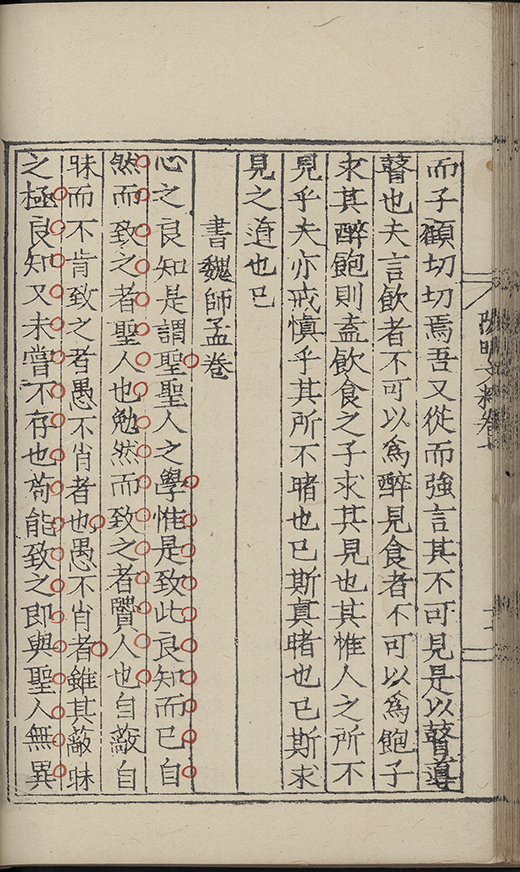 而子顧切切焉吾又從而強言其不可見是以瞽導
瞽也夫言飲者不可以爲醉見食者不可以爲飽子
求其醉飽則盍飲食之子求其見也其惟人之所不
見乎夫亦戒愼乎其所不睹也已斯眞睹也已斯求
見之道也已
書魏師孟卷
心之良知是謂聖聖人之學惟是致此良知而已自
然而致之者聖人也勉然而致之者賢人也自蔽自
昧而不肯致之者愚不肖者也愚不肖者雖其蔽昧
之極良知又未嘗不存也苟能致之即與聖人無異